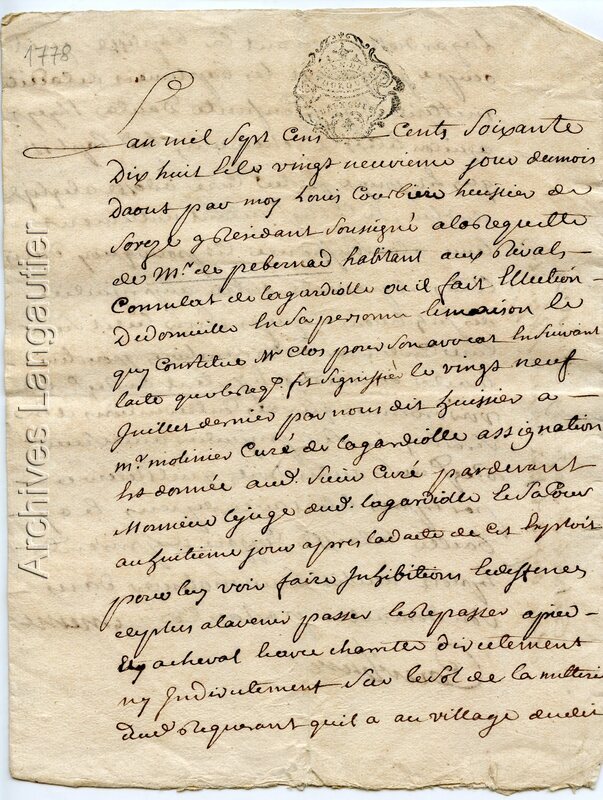 1778
Lan mil sept cens cents soixante
dix huit & le vingt neuvieme jour du mois
daout par moy Louis Courbiere huissier de
Soreze y residant soussigné a la requette
de Mr. de pebernad habitant aux Rivals
Consulat de lagardiolle ou il fait Ellection
de domicille En sa personne & maison &
quy Constitue Me Clos pour son avocat En suivant
lacte que le reqt. fit signiffier le vingt neuf
Juillet dernier par nous dit huissier a
mr. molinier Curé de lagardiolle assignation
Est donnée aud. sieur Curé pardevant
Monsieur le juge dud. lagardiolle & sa Cour
au huitieme jour apres la dacte de cet Exploit
pour luy voir faire Inhibitions & deffences
de plus a lavenir passer & repasser a pied
ny a cheval & avec charrette directement
ny Indirectement sur le sol de la
dud. requerant quil a au village dudit
Archives Langautier